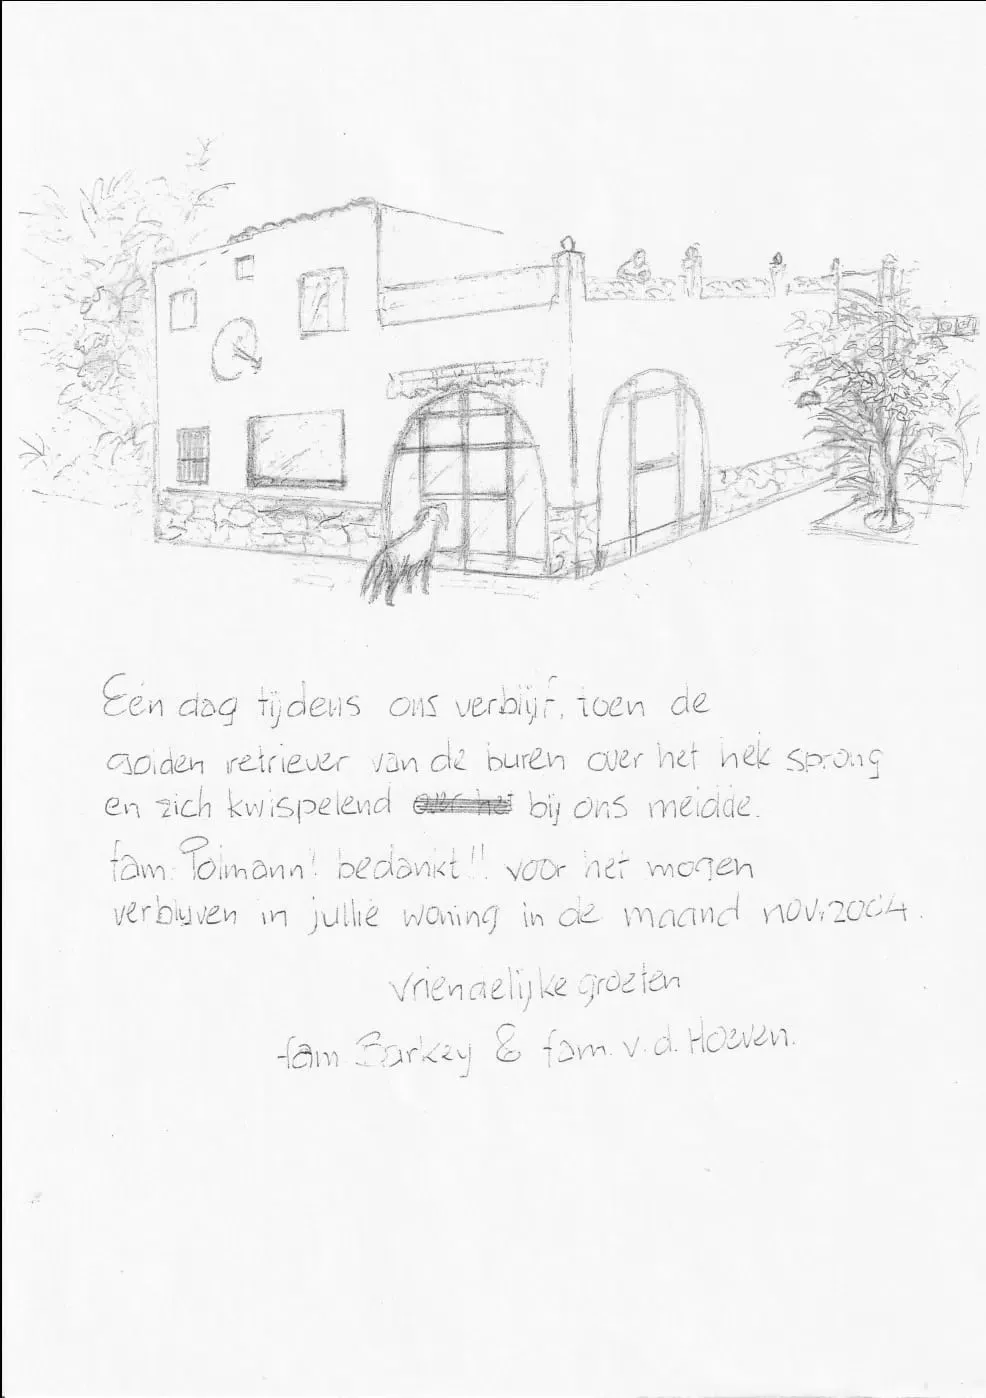 Eén dag tijdens ons verblijf, toen de
golden retriever van de buren over het hek sprong
en zich kwispelend bij ons meldde.
fam. Polmann! bedankt!! voor het mogen
verblijven in jullie woning in de maand nov. 2004.
vriendelijke groeten
fam. Barkey & fam. v.d. Hoeven.